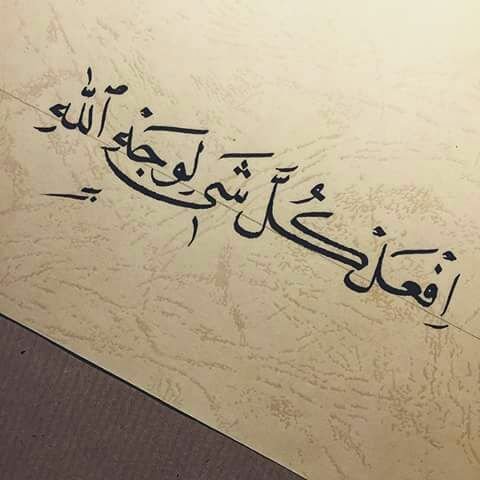 اِفْعَلْ كُلَّ شَيٍ لِوَجْهِ ٱللّٰهِ